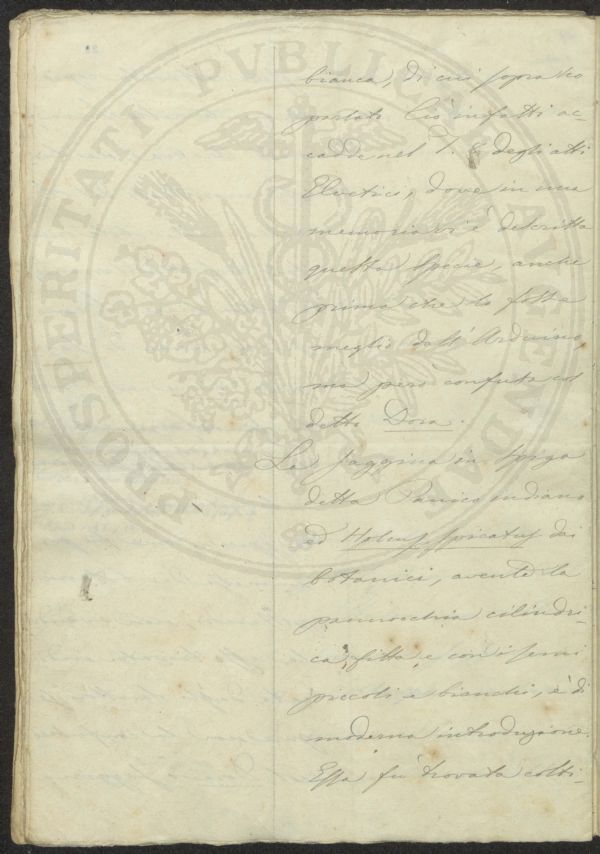 PROSPERITATI PUBLICAE AUGENDAE
bianca, di cui sopra v'ho
parlato. Ciò infatti ac-
cadde nel T. degli atti
Elvetici, dove in una
memoria vi è descritta
questa specie, anche
prima che lo fosse
meglio dall' Arduino
ma però confusa col
detto Dora.
La saggina in spiga
detta Panico indiano
ed Holcus spicatus dai
botanici, avente la
pannocchia cilindri-
ca, fitta, e con i semi
piccoli e bianchi, è di
moderna introduzione.
Essa fù trovata colti-